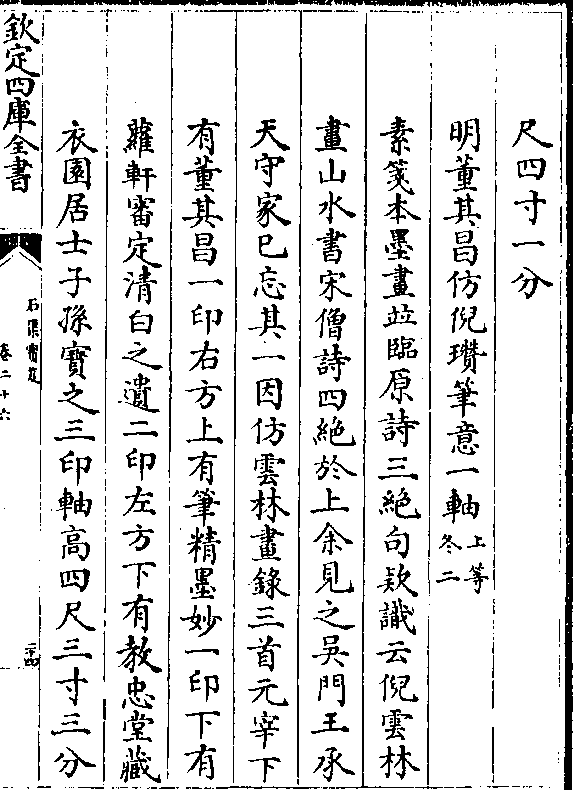 尺四寸一分
明董其昌仿倪瓚筆意一軸上等冬二
素箋本墨畫並臨原詩三絶句欵識云倪雲林
畫山水書宋僧詩四絶於上余見之吳門王承
天守家巳忘其一因仿雲林畫錄三首元宰下
有董其昌一印右方上有筆精墨妙一印下有
蘿軒審定清白之遺二印左方下有教忠堂藏
衣園居士子孫寶之三印軸高四尺三寸三分
欽定四庫全書
石渠寳笈
卷二十六
二十四